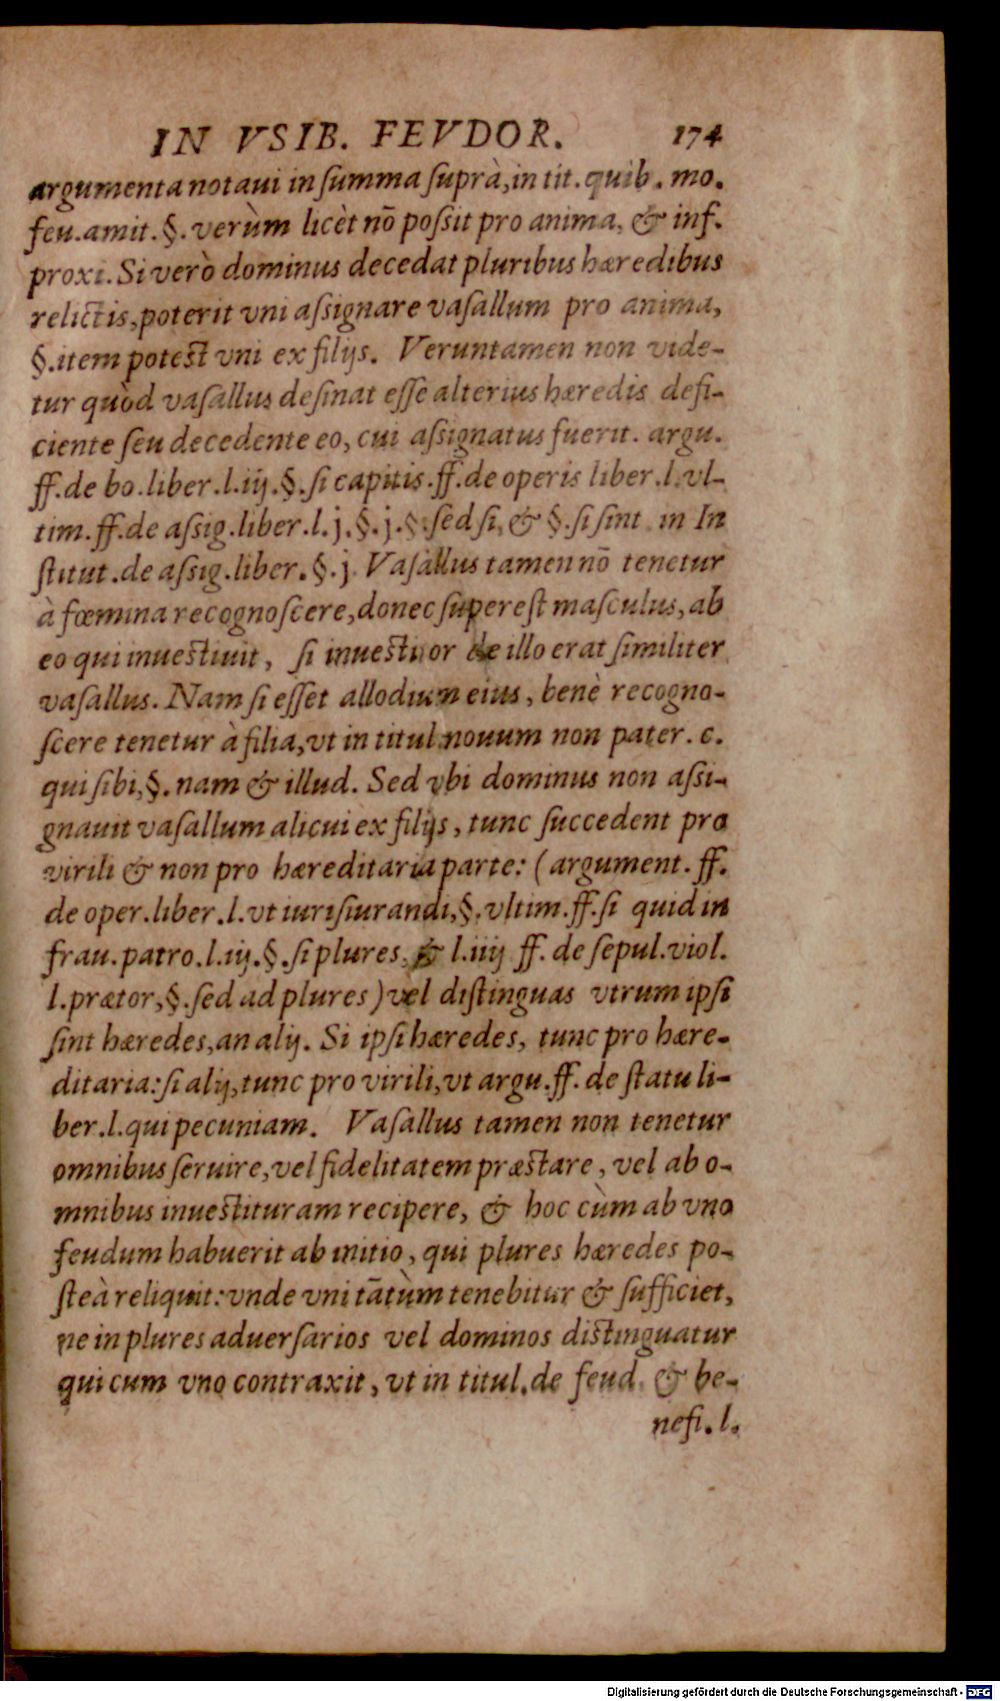 IN VSIB. FEVDOR. 174
argumenta notaui in ſumma ſuprà, in tit. quib. mo.
feu. amit. §. verùm licèt nō poſsit pro anima, & inf.
proxi. Si verò dominus decedat pluribus hæredibus
relictis, poterit vni aſsignare vaſallum pro anima,
§. item poteſt vni ex filijs. Veruntamen non vide-
tur quòd vaſallus deſinat eſſe alterius hæredis defi-
ciente ſeu decedente eo, cui aſsignatus fuerit. argu.
ff. de bo. liber. l. iij. §. ſi capitis. ff. de operis liber. l. vl-
tim. ff. de aſsig. liber. l. j. §. j. §. ſed ſi, & §. ſi ſint in In
ſtitut. de aſsig. liber. §. j. Vaſallus tamen nō tenetur
à fœmina recognoſcere, donec ſupereſt maſculus, ab
eo qui inueſtiuit, ſi inueſtitor de illo erat ſimiliter
vaſallus. Nam ſi eſſet allodium eius, benè recogno-
ſcere tenetur à filia, vt in titul. nouum non pater. c.
qui ſibi, §. nam & illud. Sed vbi dominus non aſsi-
gnauit vaſallum alicui ex filijs, tunc ſuccedent pro
virili & non pro hæreditaria parte: (argument. ff.
de oper. liber. l. vt iuriſiurandi, §. vltim. ff. ſi quid in
frau. patro. l. iij. §. ſi plures, & l. iiij ff. de ſepul. viol.
l. prætor, §. ſed ad plures) vel diſtinguas vtrum ipſi
ſint hæredes, an alij. Si ipſi hæredes, tunc pro hære-
ditaria: ſi alij, tunc pro virili, vt argu. ff. de ſtatu li-
ber. l. qui pecuniam. Vaſallus tamen non tenetur
omnibus ſeruire, vel fidelitatem præſtare, vel ab o-
mnibus inueſtituram recipere, & hoc cùm ab vno
feudum habuerit ab initio, qui plures hæredes po-
ſteà reliquit: vnde vni tātùm tenebitur & ſufficiet,
ne in plures aduerſarios vel dominos diſtinguatur
qui cum vno contraxit, vt in titul. de feud. & be-
nefi. l.
Digitalisierung gefördert durch die Deutsche Forschungsgemeinschaft - DFG